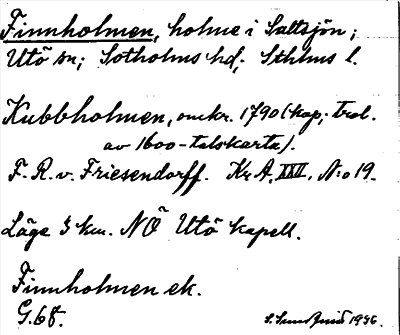 Finnholmen, holme i Saltsjön;
Utö sn; Sotholms hd; Sthlms l.
Kubbholmen, omkr. 1790 (kap; trol.
av 1600-talskarta).
F. R. v. Friesendorff. Kr A, XXV, N:o 19.
Läge 3 km. NÖ Utö kapell.
Finnholmen ek.
G.68.
1936.